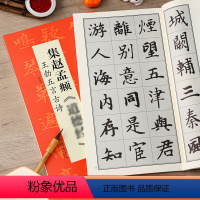 城闕輔三秦
煙望五津與君
離别意同是宦
游人海内存知
集赵孟頫
王勃五言古诗
粉象优品